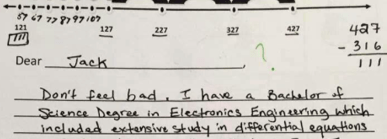 57 67 77 87 97 107
121
111
127 227 327 427
427
- 316
111
Dear Jack,
?
Don't feel bad. I have a Bachelor of
Science Degree in Electronics Engineering which
included extensive study in differential equations